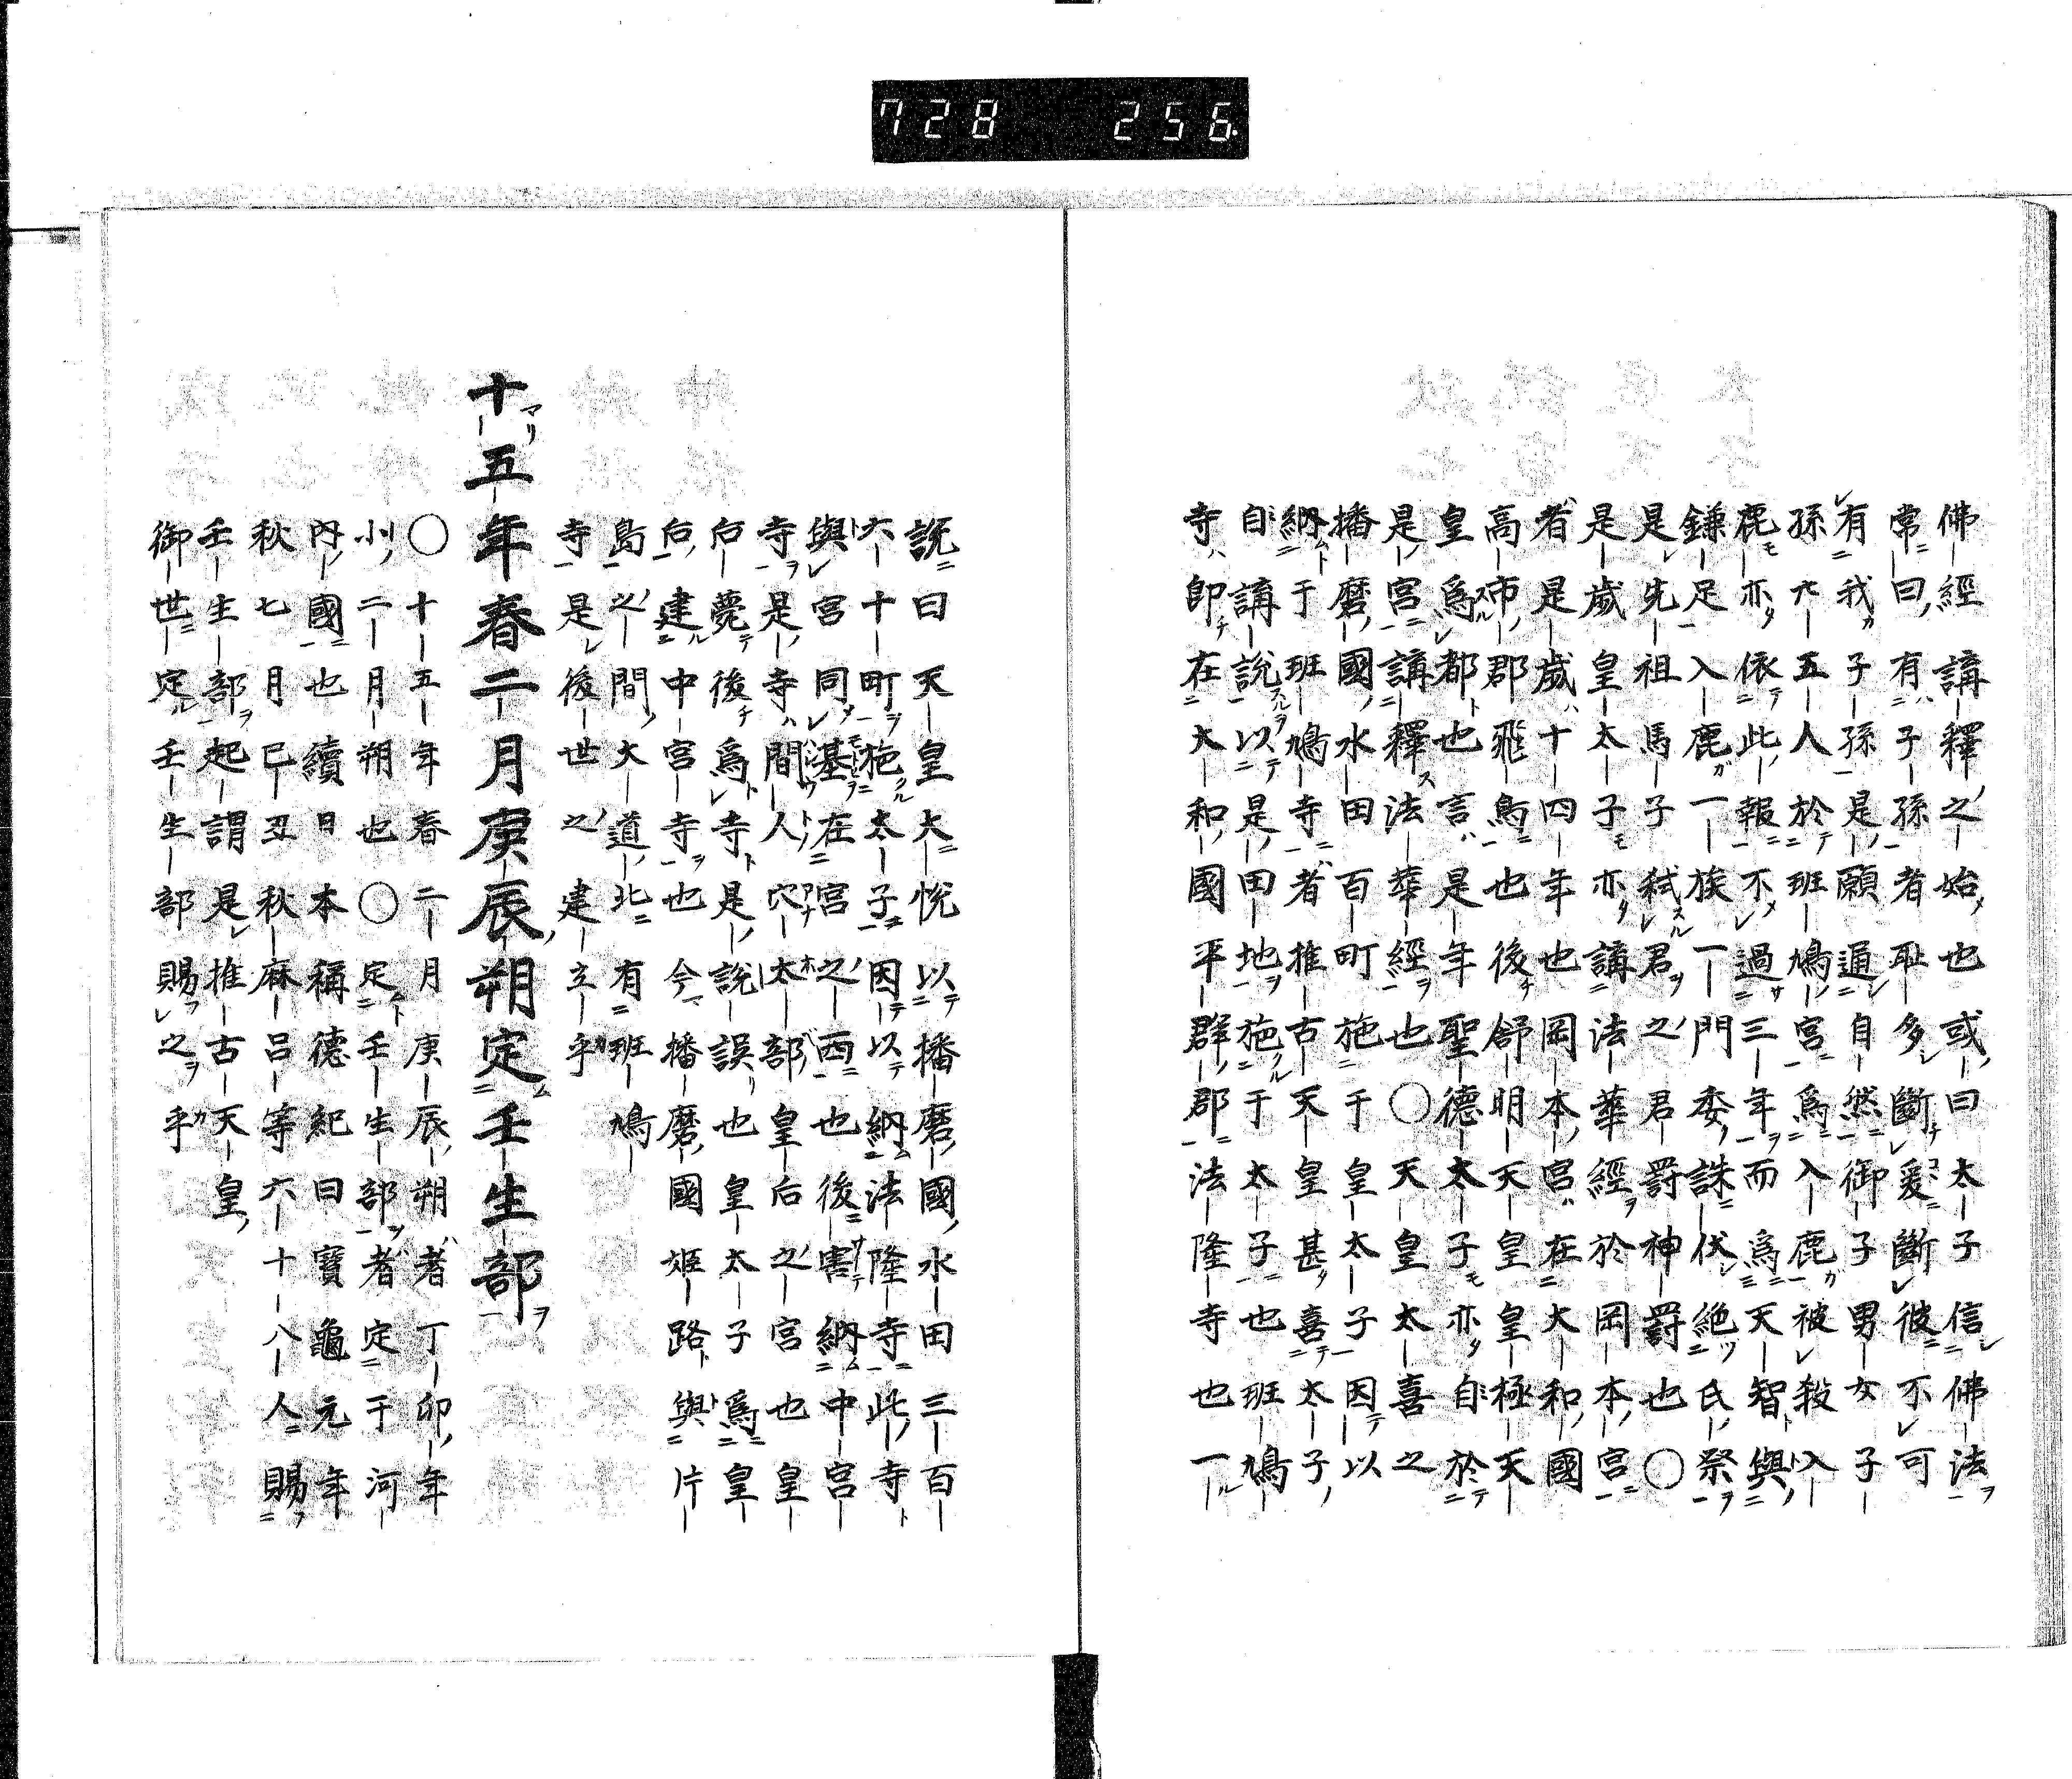 728 256
佛經講釋之始也或曰太子信佛法
常曰有子孫者恥多斷爰斷彼不可
有我子孫是願通自然御子男女子
孫六五人於班鳩宮爲入鹿被殺入
鹿亦依此報不過三年而爲天智與
鎌足入鹿一族一門委誅伏絶氏祭
是先祖馬子弑君之君罸神罸也〇
是歳皇太子亦講法華經於岡本宮
者是歳十四年也岡本宮在大和國
高市郡飛鳥也後舒明天皇皇極天
皇爲都也言是年聖德太子亦自於
是宮講釋法華經也〇天皇太喜之
播磨國水田百町施于皇太子因以
納于班鳩寺者推古天皇甚喜太子
自講說以是田地施于太子也班鳩
寺即在大和國平群郡法隆寺也一
說曰天皇大悅以播磨國水田三百
六十町施太子因以納法隆寺此寺
與宮同基在宮之西也後害納中宮
寺是寺間人穴太部皇后之宮也皇
后薨後爲寺是說誤也皇太子爲皇
后建中宮寺也今播磨國姬路與片
島之間大道北有班鳩
寺是後世之建立乎
十五年春二月庚辰朔定壬生部
〇十五年春二月庚辰朔者丁卯年
小二月朔也〇定壬生部者定于河
内國也續日本稱德紀曰寶龜元年
秋七月己丑秋麻呂等六十八人賜
壬生部起謂是推古天皇
御世定壬生部賜之乎